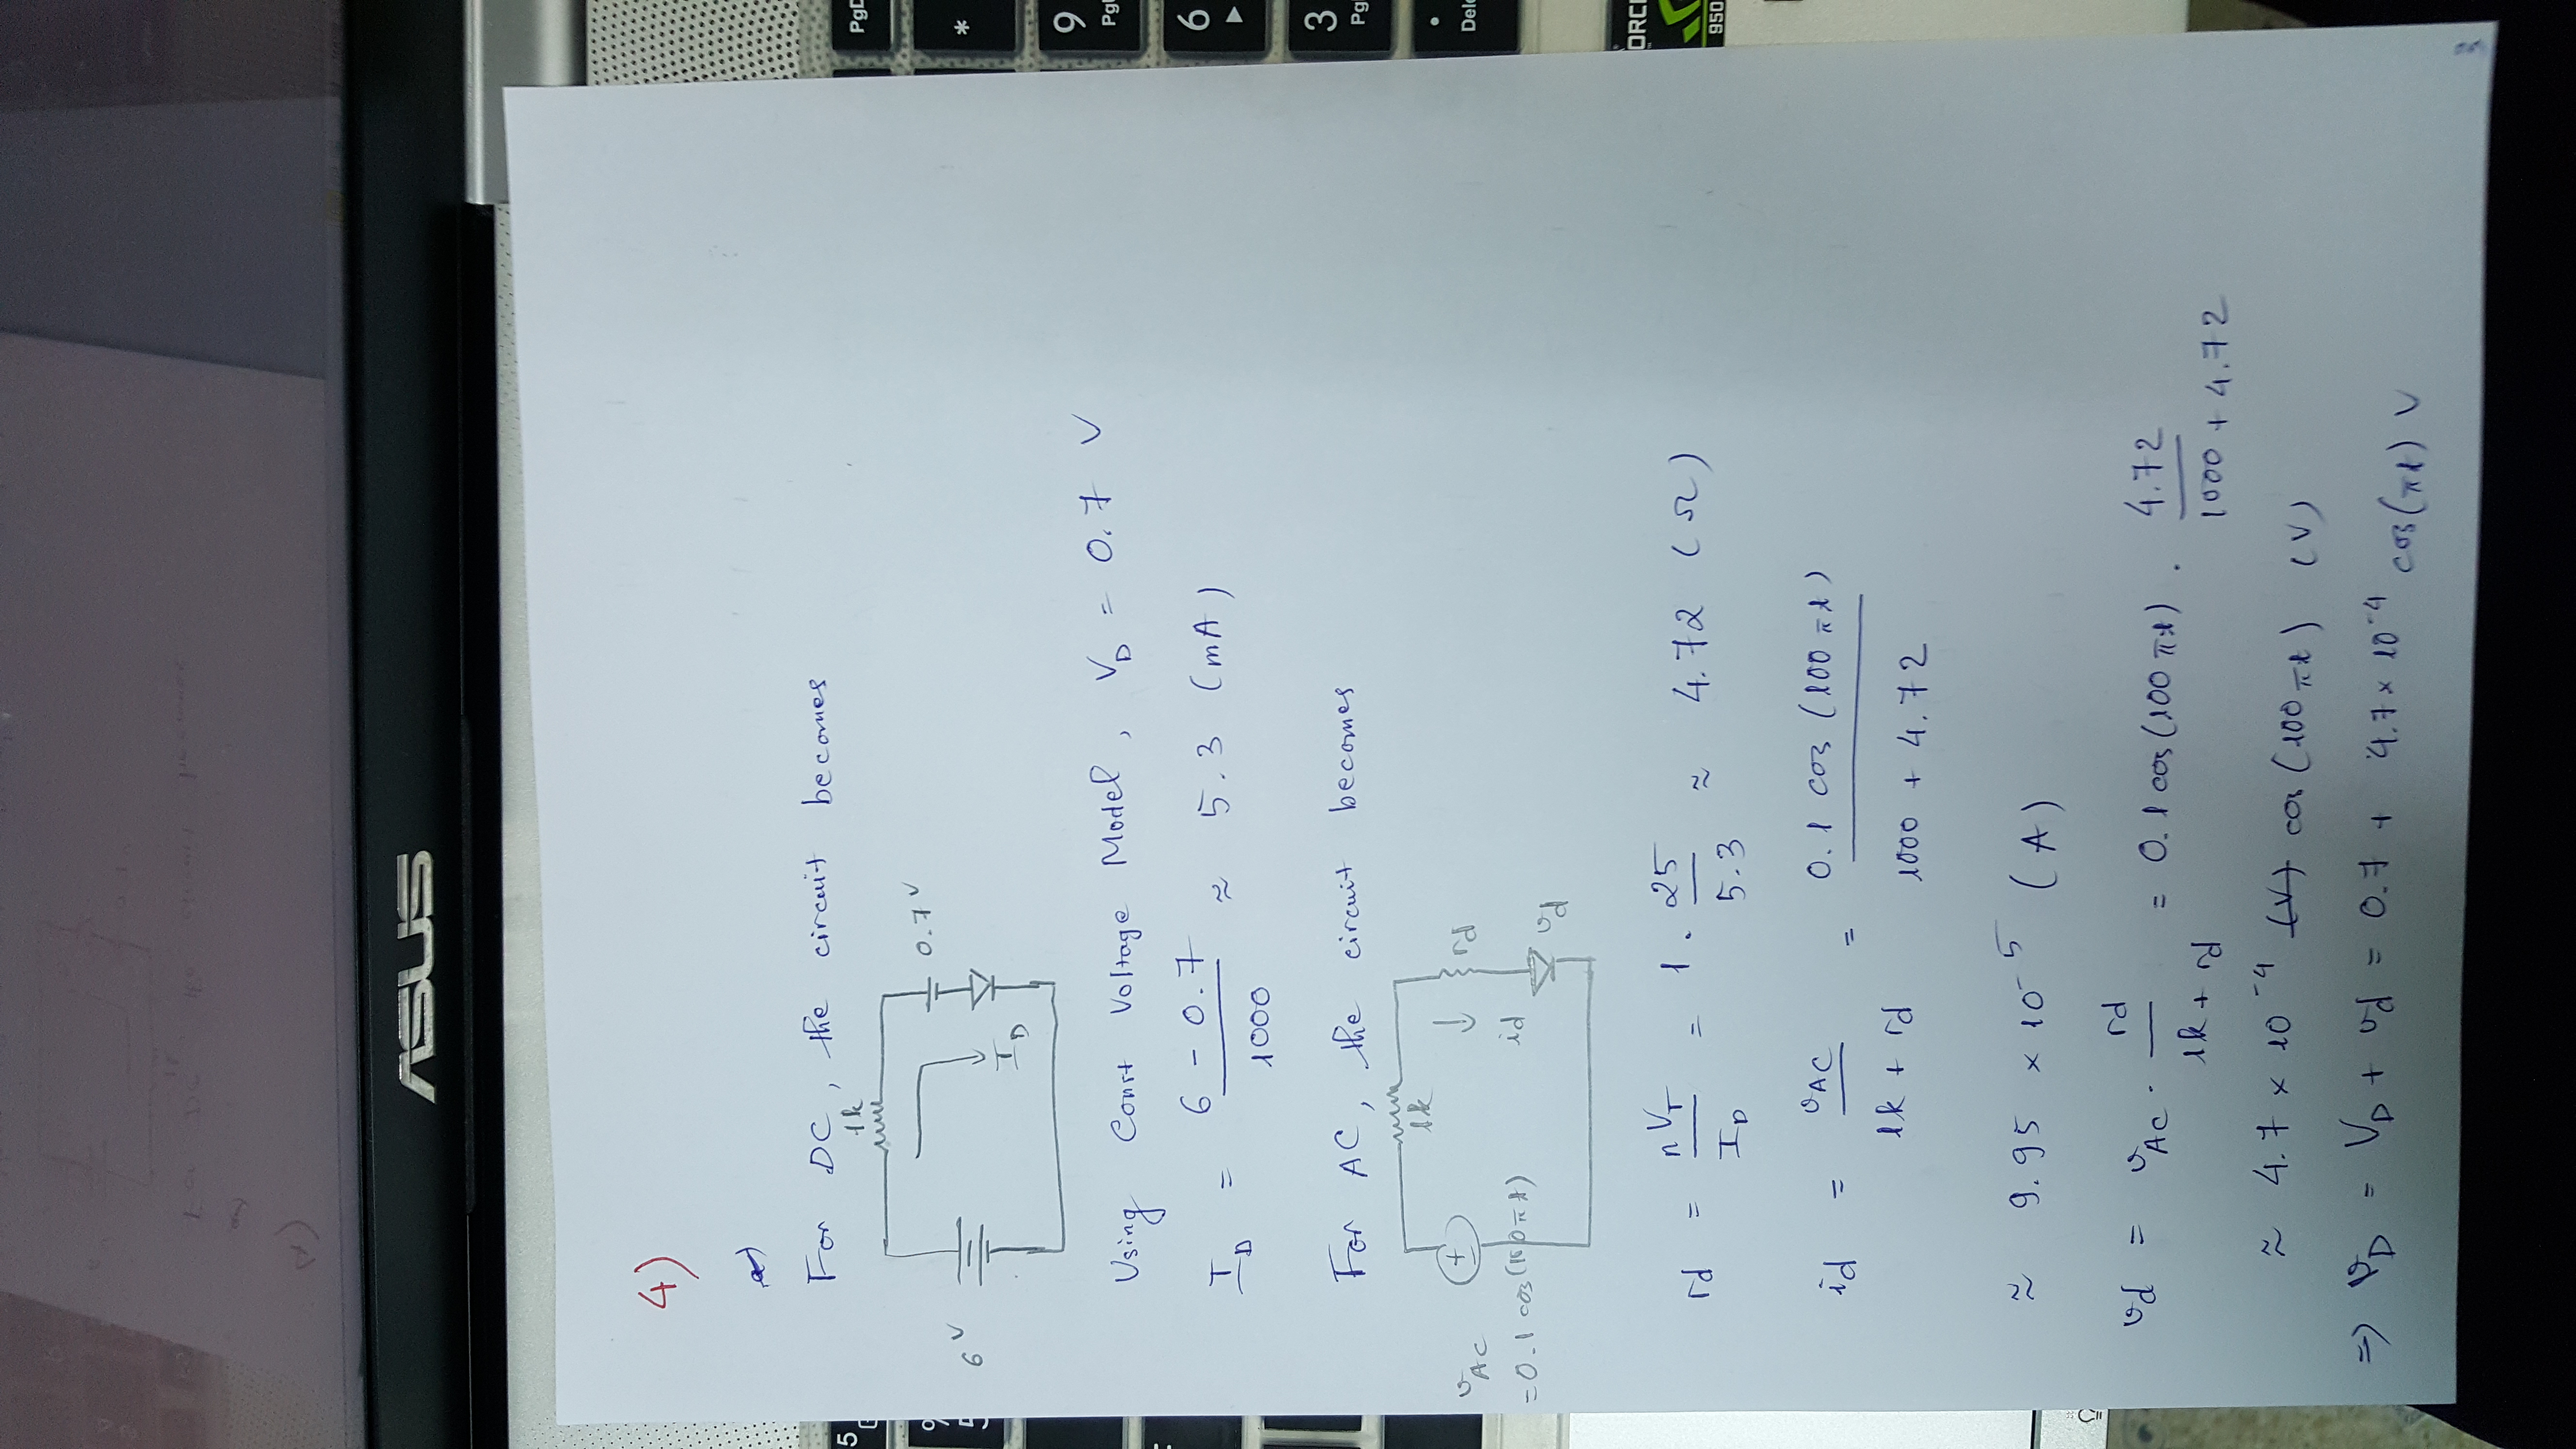 For DC, the circuit becomes
ASUS
4)
a)
For DC, the circuit becomes
1k
0.7 V
6 V
I_D
Using Const Voltage Model, V_D = 0.7 V
I_D = (6 - 0.7) / 1000 ≈ 5.3 (mA)
For AC, the circuit becomes
1k
v_AC
= 0.1 cos(100πt)
rd
id
vd
rd = nV_T / I_D = 1 . 25 / 5.3 ≈ 4.72 (Ω)
id = v_AC / (1k + rd) = 0.1 cos(100πt) / (1000 + 4.72)
≈ 9.95 × 10^-5 (A)
vd = v_AC . rd / (1k + rd) = 0.1 cos(100πt) . 4.72 / (1000 + 4.72)
≈ 4.7 × 10^-4 (V) cos(100πt) (V)
=> v_D = V_D + vd = 0.7 + 4.7 × 10^-4 cos(πt) V
5
%
5
PgD
*
9
Pg
6
3
Pg
.
Dele
950